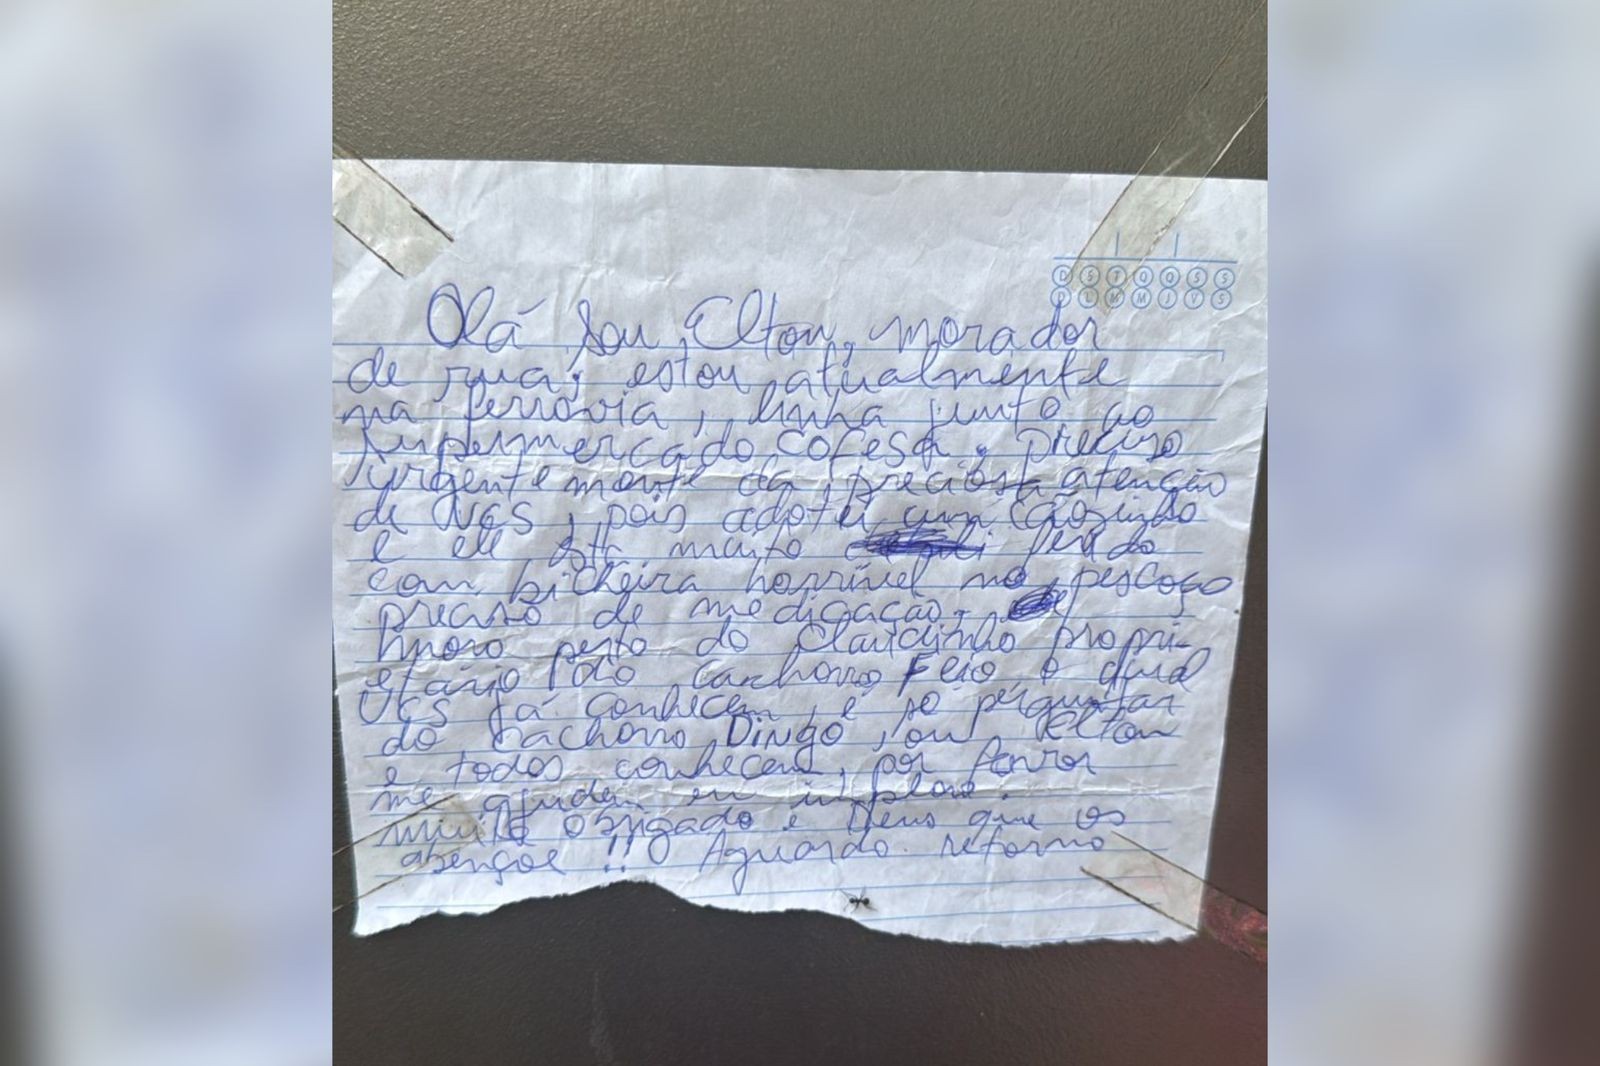 D S T Q Q S S
D L M M J V S
Olá, sou Elton, morador
de rua; estou atualmente
na ferrovia, linha junto ao
supermercado Cofesa. Preciso
urgentemente da preciosa atenção
de vcs, pois adotei um cãozinho
e ele está muito ferido
com bicheira horrível no pescoço
preciso de medicação.
moro perto do Claudinho propri-
etário do cachorro Feio o qual
vcs já conhecem, é só perguntar
do cachorro Dingo, ou Elton
e todos conhecem, por favor
me ajudem eu imploro.
muito obrigado e Deus que os
abençoe!! Aguardo retorno